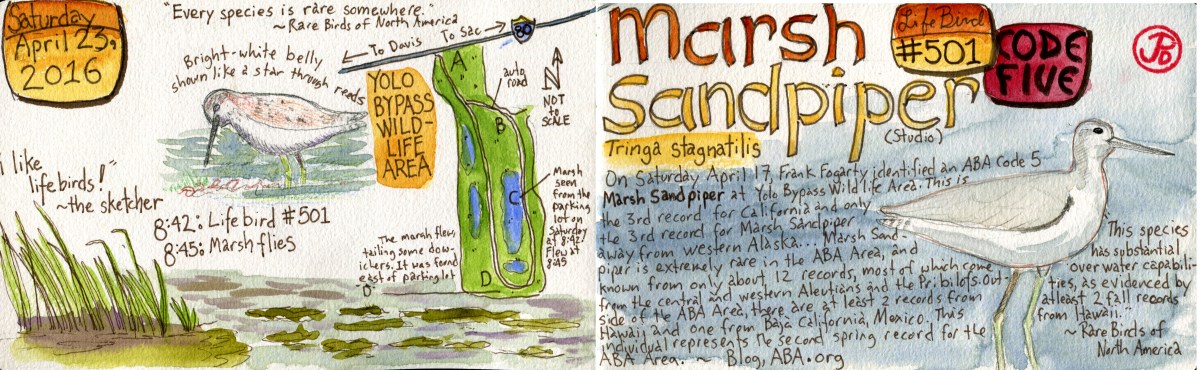 Saturday
April 23,
2016
"Every species is rare somewhere."
~ Rare Birds of North America
Bright-white belly
shown like a star through reads
i like
lifebirds!"
~the sketcher
8:42: Lifebird #501
8:45: Marsh flies
To Davis To Sac
80
YOLO
BYPASS
WILD-
LIFE
AREA
A
auto
road
B
C
D
N
NOT
to
SCALE
Marsh
seen
from the
parking
lot on
Saturday
at 8:42!
Flew at
8:45
The marsh flew,
tailing some dow-
ichers. It was found
east of parking lot
"D"
Marsh
Sandpiper
(Studio)
Life Bird
#501
CODE
FIVE
JPD
Tringa stagnatilis
On Saturday April 17, Frank Fogarty identified an ABA Code 5
Marsh Sandpiper at Yolo Bypass Wildlife Area. This is
the 3rd record for California and only
the 3rd record for Marsh Sandpiper
away from western Alaska... Marsh Sand-
piper is extremely rare in the ABA Area, and
known from only about 12 records, most of which come
from the central and western Aleutians and the Pribilofs. Out-
side of the ABA Area, there are at least 2 records from
Hawaii and one from Baja California, Mexico. This
individual represents the second spring record for the
ABA Area. ~ Blog, ABA.org
"This species
has substantial
over water capabili-
ties, as evidenced by
atleast 2 fall records
from Hawaii."
~ Rare Birds of
North America